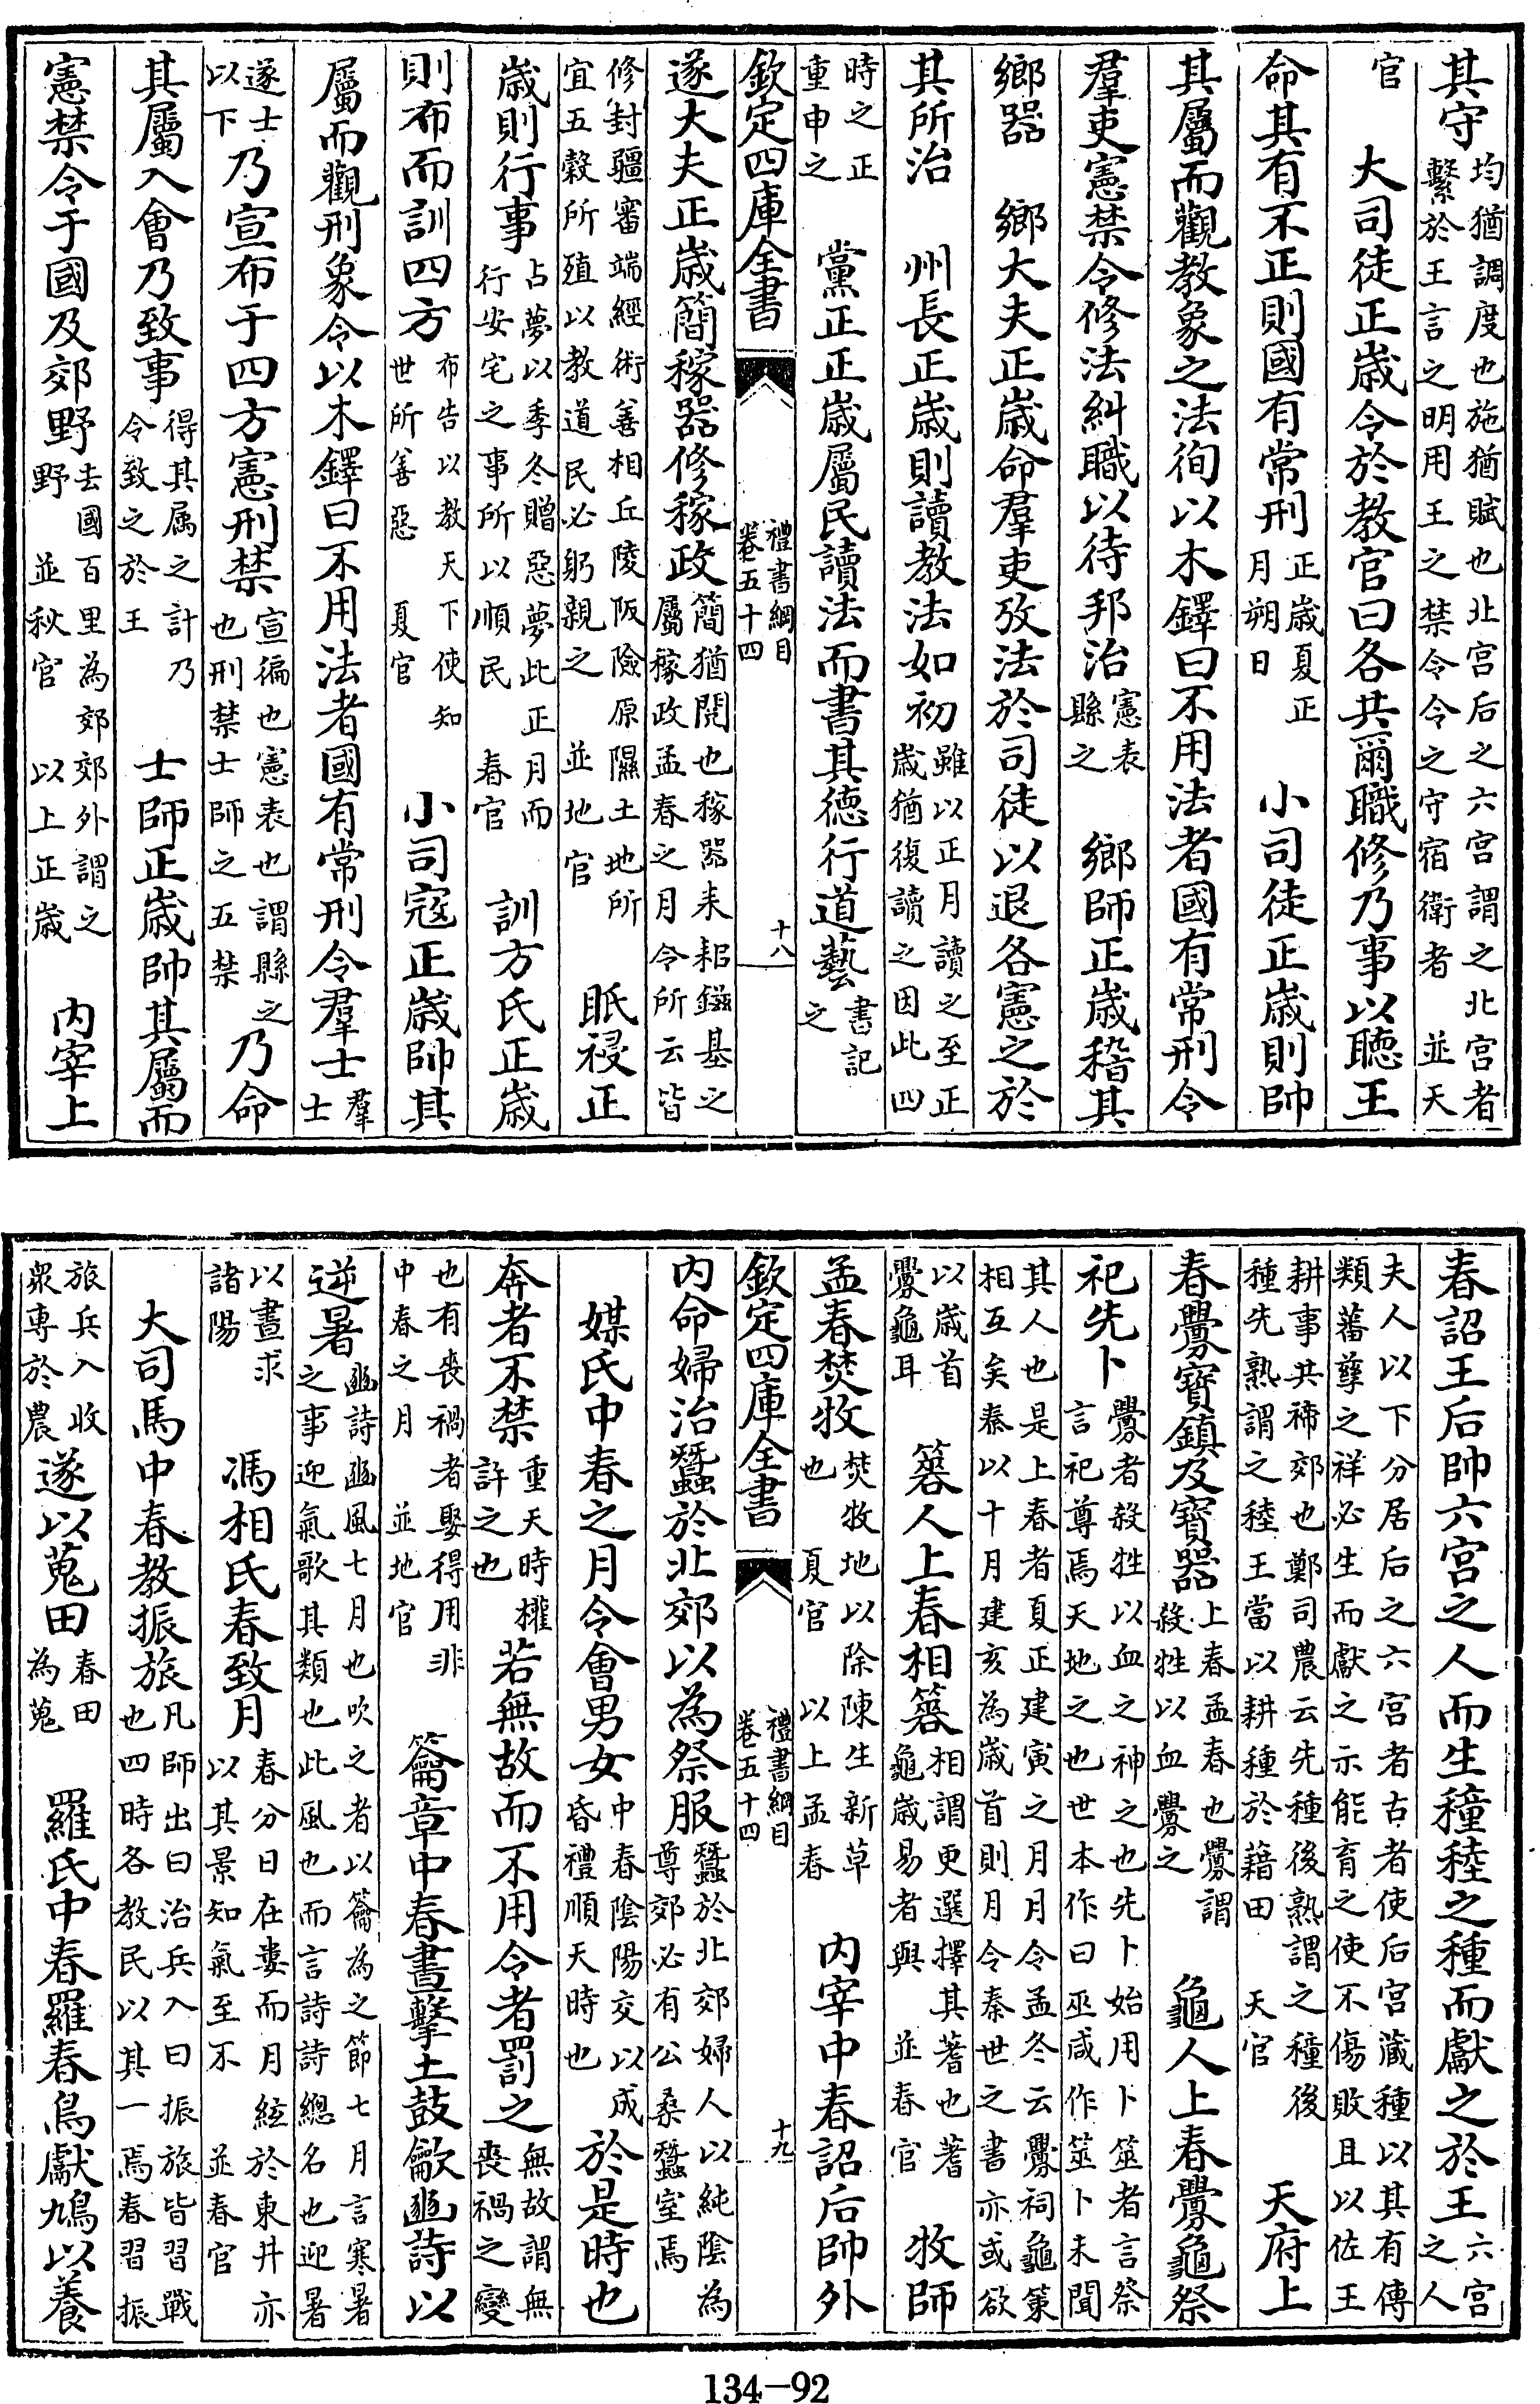 其守均猶調度也施猶賦也北宫后之六宫謂之北宫者繫於王言之明用王之禁令令之守宿衛者　並天
官　大司徒正歲令於教官曰各共爾職修乃事以聽王
命其有不正則國有常刑正歲夏正月朔日　小司徒正歲則帥
其屬而觀教象之法徇以木鐸曰不用法者國有常刑令
羣吏憲禁令修法糾職以待邦治憲表縣之　鄉師正歲稽其
鄉器　鄉大夫正歲命羣吏攷法於司徒以退各憲之於
其所治　州長正歲則讀教法如初雖以正月讀之至正歲猶復讀之因此四
時之正重申之　黨正正歲屬民讀法而書其德行道藝書記之
欽定四庫全書　禮書綱目卷五十四　十八
遂大夫正歲簡稼器修稼政簡猶閱也稼器耒耜鎡基之屬稼政孟春之月令所云皆
修封疆審端經術善相丘陵阪險原隰土地所宜五穀所殖以教道民必躬親之　並地官　眡祲正
歲則行事占夢以季冬贈惡夢此正月而行安宅之事所以順民　春官　訓方氏正歲
則布而訓四方布告以教天下使知世所善惡　夏官　小司寇正歲帥其
屬而觀刑象令以木鐸曰不用法者國有常刑令羣士羣士
遂士以下乃宣布于四方憲刑禁宣徧也憲表也謂縣之也刑禁士師之五禁乃命
其屬入會乃致事得其属之計乃令致之於王　士師正歲帥其屬而
憲禁令于國及郊野去國百里為郊郊外謂之野　並秋官　以上正歲　内宰上
春詔王后帥六宫之人而生穜稑之種而獻之於王六宫之人
夫人以下分居后之六宫者古者使后宫藏種以其有傳類蕃孳之祥必生而獻之示能育之使不傷敗且以佐王
耕事共禘郊也鄭司農云先種後熟謂之穜後種先熟謂之稑王當以耕種於藉田　天官　天府上
春釁寶鎮及寶器上春孟春也釁謂殺牲以血釁之　龜人上春釁龜祭
祀先卜釁者殺牲以血之神之也先卜始用卜筮者言祭言祀尊焉天地之也世本作曰巫咸作筮卜未聞
其人也是上春者夏正建寅之月月令孟冬云釁祠龜策相互矣秦以十月建亥為歲首則月令秦世之書亦或欲
以歲首釁龜耳　簭人上春相簭相謂更選擇其蓍也蓍龜歲易者與　並春官　牧師
孟春焚牧焚牧地以除陳生新草也　夏官　以上孟春　内宰中春詔后帥外
欽定四庫全書　禮書綱目卷五十四　十九
内命婦治蠶於北郊以為祭服蠶於北郊婦人以純陰為尊郊必有公桑蠶室焉
媒氏中春之月令會男女中春陰陽交以成昏禮順天時也於是時也
奔者不禁重天時權許之也若無故而不用令者罰之無故謂無喪禍之變
也有喪禍者娶得用非中春之月　並地官　籥章中春晝擊土鼓龡豳詩以
逆暑豳詩豳風七月也吹之者以籥為之節七月言寒暑之事迎氣歌其類也此風也而言詩詩總名也迎暑
以晝求諸陽　馮相氏春致月春分日在婁而月弦於東井亦以其景知氣至不　並春官
大司馬中春教振旅凡師出曰治兵入曰振旅皆習戰也四時各教民以其一焉春習振
旅兵入收衆專於農遂以蒐田春田為蒐　羅氏中春羅春鳥獻鳩以養
134-92